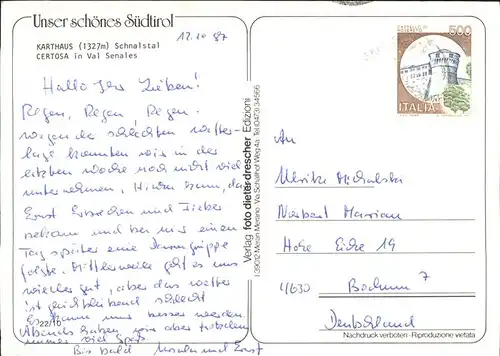 Unser schönes Südtirol
KARTHAUS (1327m) Schnalstal
CERTOSA in Val Senales
12.10.87
Hallo Ihr Lieben!
Regen, Regen, Regen.
wegen der schlechten Wetter-
lage konnten wir in der
letzten Woche noch nicht viel
unternehmen. Hinzu kam, daß
Ernst Erbrechen und Fieber
bekam und bei mir einen
Tag später eine Darmgrippe
folgte. Mittlerweile geht es uns
wieder gut, aber das Wetter
ist gleichbleibend schlecht
Es kann nur besser werden.
Abends haben wir aber trotzdem
immer viel Spaß
Bis bald Ursula und Ernst
22/10
Verlag foto dieter drescher Edizioni
I 39012 Meran Merano Via Schaffer Weg 4a Tel (0473) 34566
500
ITALIA
An
Ulrike
Norbert
Hohe Eiche 19
4630 Bochum 7
Deutschland
Nachdruck verboten · Riproduzione vietata